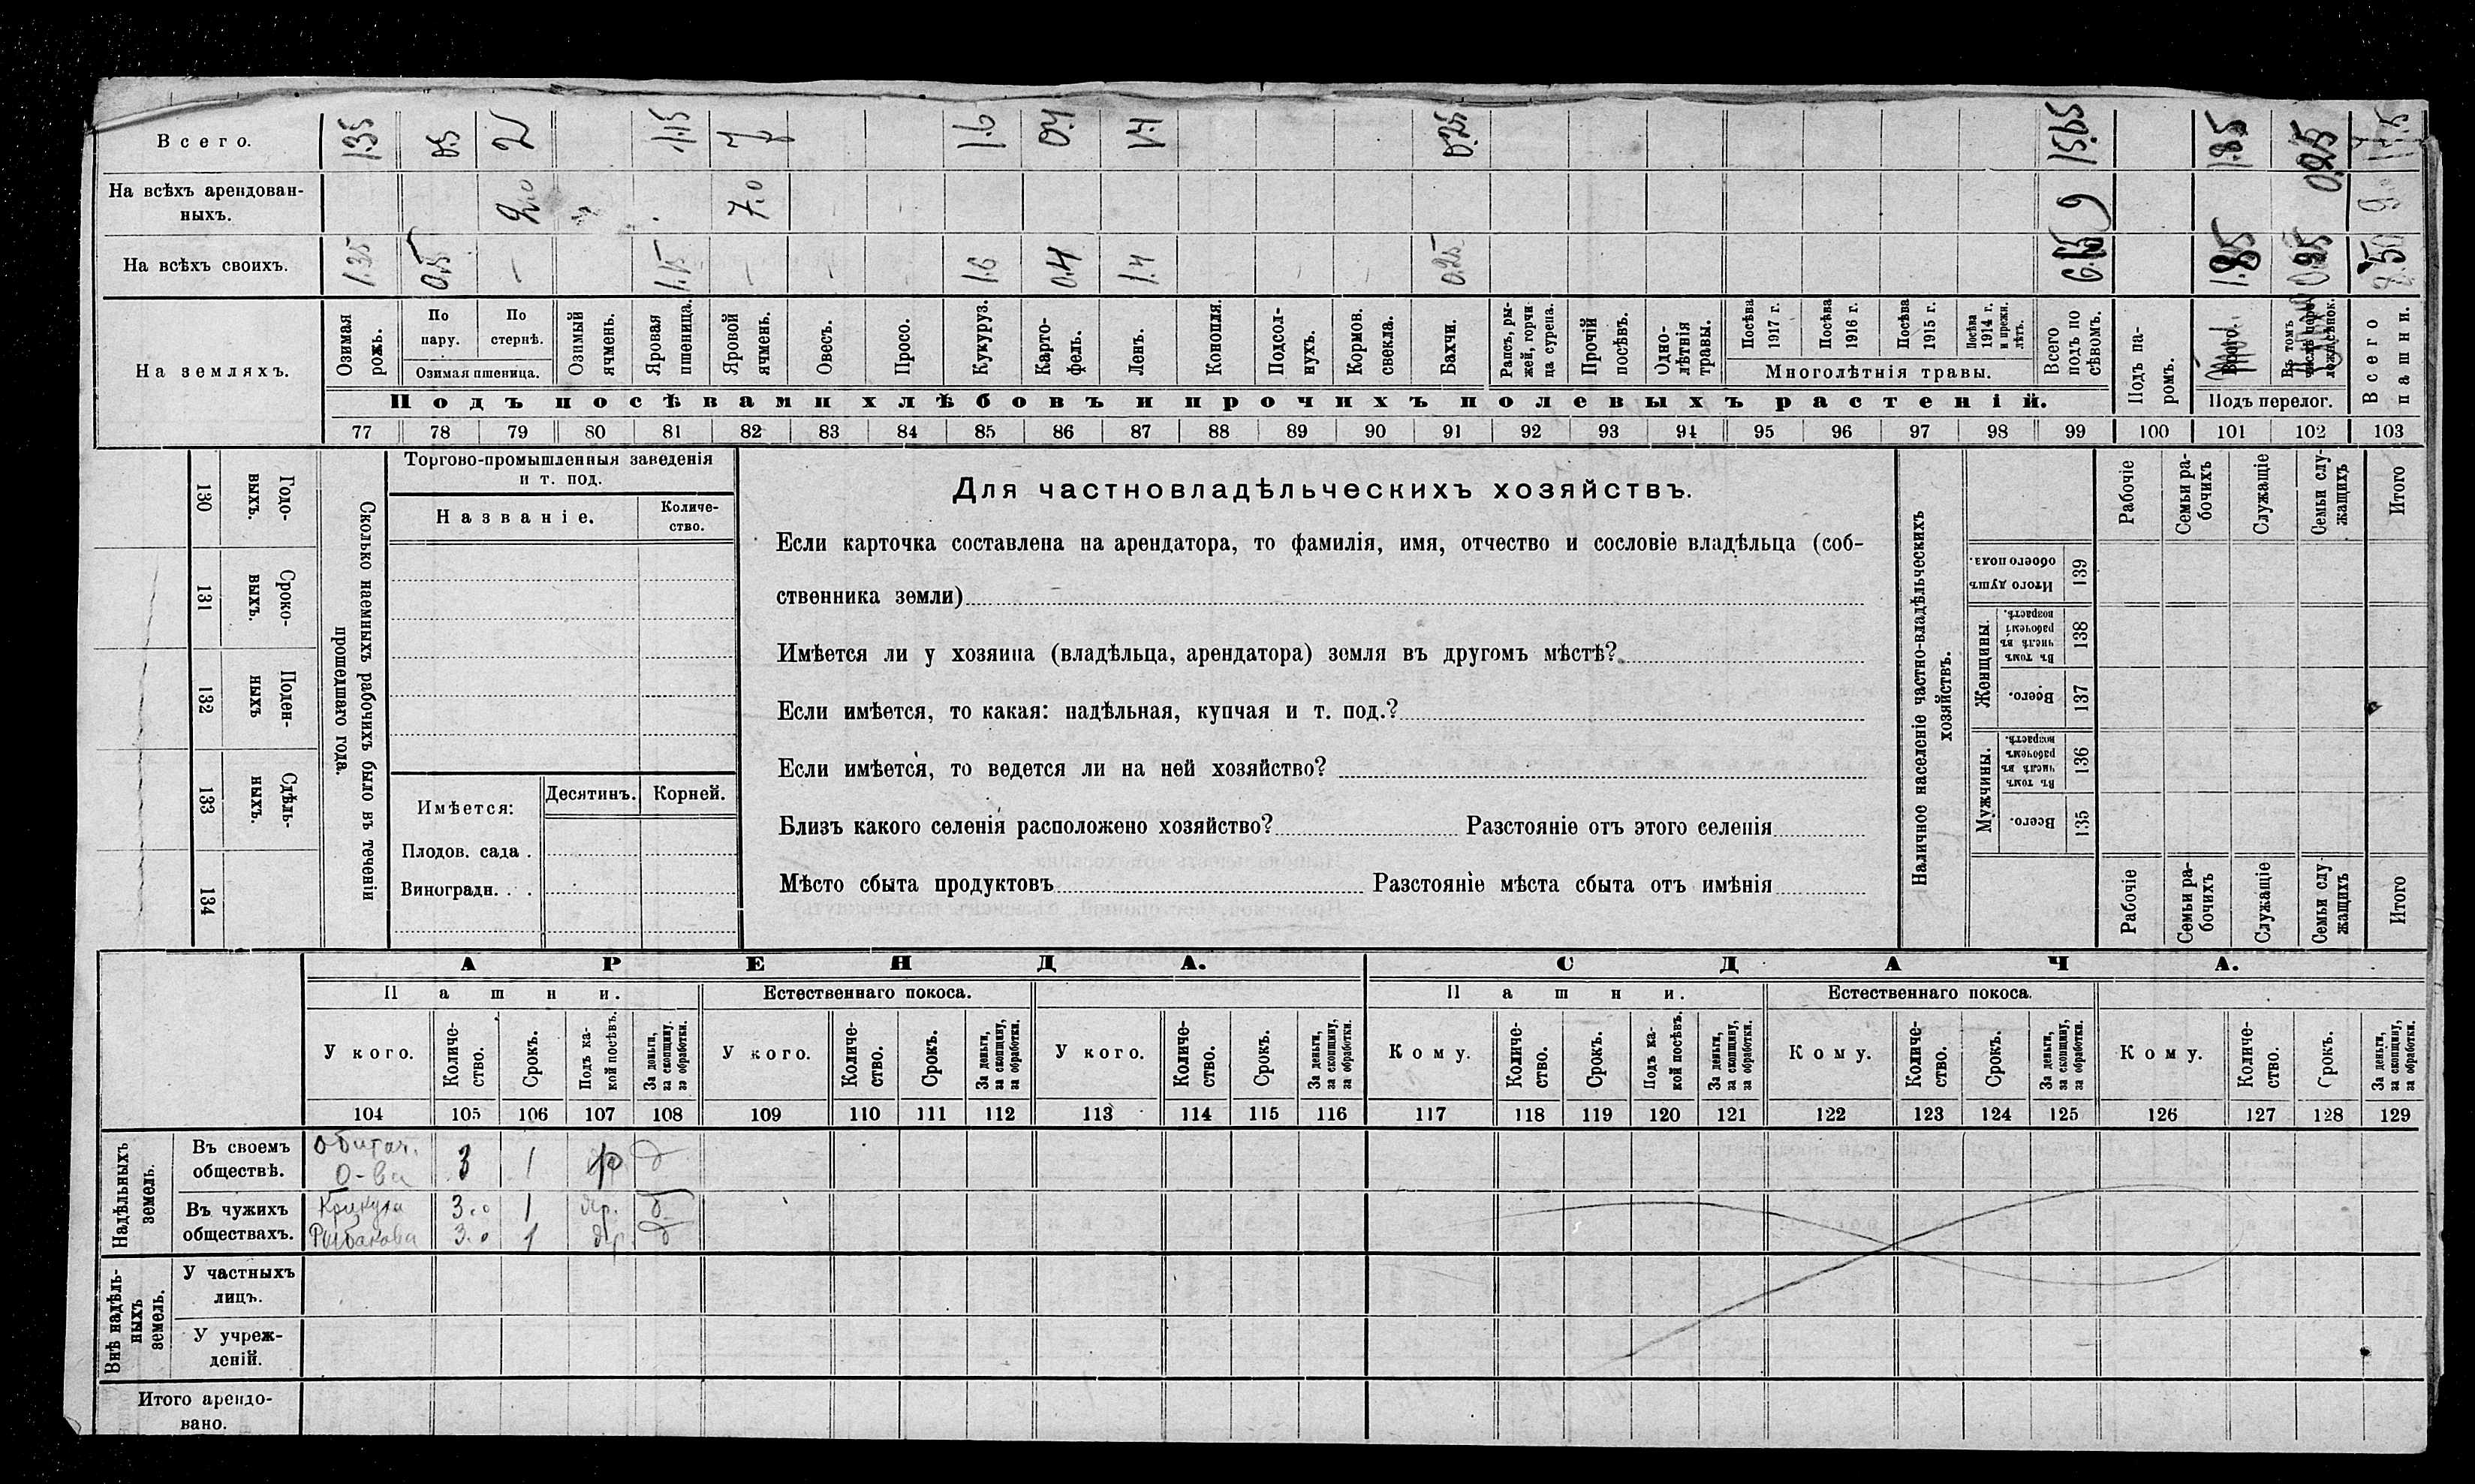 Всего. 1.35 0.5 2 1.15 7 1.6 0.4 1.4 0.25 15.65 1.85 0.25
На всѣхъ арендован-
ныхъ. 2.0 7.0 9 9.0
На всѣхъ своихъ. 1.35 0.5 — 1.15 — — 1.6 0.4 1.4 0.25 6.65 1.85 0.25 8.50
На земляхъ.
Озимая рожь.
По пару.
По стернѣ.
Озимая пшеница.
Озимый ячмень.
Яровая пшеница.
Яровой ячмень.
Овесъ.
Просо.
Кукуруз.
Карто-
фель.
Ленъ.
Конопля.
Подсол-
нухъ.
Кормов.
свекла.
Бахчи.
Рапсъ, ры-
жей, горчи
ца сурепа.
Прочій
посѣвъ.
Одно-
лѣтнія
травы.
Посѣва
1917 г.
Посѣва
1916 г.
Посѣва
1915 г.
Посѣва
1914 г.
и прежн.
лѣтъ.
Многолѣтнія травы.
Всего
подъ по
сѣвомъ.
Подъ па-
ромъ.
Всего.
Въ томъ
числѣ
Подъ перелог.
Всего
пашни.
Подъ посѣвами хлѣбовъ и прочихъ полевыхъ растеній.
77 78 79 80 81 82 83 84 85 86 87 88 89 90 91 92 93 94 95 96 97 98 99 100 101 102 103
130 Годо-
выхъ.
131 Сроко-
выхъ.
132 Поден-
ныхъ
133 Сдѣль-
ныхъ.
134
Сколько наемныхъ рабочихъ было въ теченіи
прошедшаго года.
Торгово-промышленныя заведенія
и т. под.
Названіе.
Количе-
ство.
Имѣется:
Десятинъ. Корней.
Плодов. сада .
Виноградн. . .
Для частновладѣльческихъ хозяйствъ.
Если карточка составлена на арендатора, то фамилія, имя, отчество и сословіе владѣльца (соб-
ственника земли)
Имѣется ли у хозяина (владѣльца, арендатора) земля въ другомъ мѣстѣ?
Если имѣется, то какая: надѣльная, купчая и т. под.?
Если имѣется, то ведется ли на ней хозяйство?
Близъ какого селенія расположено хозяйство? Разстояніе отъ этого селенія
Мѣсто сбыта продуктовъ Разстояніе мѣста сбыта отъ имѣнія
Наличное населеніе частно-владѣльческихъ
хозяйствъ.
Рабочіе
Семьи ра-
бочихъ
Служащіе
Семьи слу-
жащихъ
Итого
Итого душъ
обоего пола. 139
Женщины.
Въ томъ
числѣ въ
рабочемъ
возрастѣ. 138
Всего. 137
Мужчины.
Въ томъ
числѣ въ
рабочемъ
возрастѣ. 136
Всего. 135
Рабочіе
Семьи ра-
бочихъ
Служащіе
Семьи слу
жащихъ
Итого
АРЕНДА. СДАЧА.
Пашни. Естественнаго покоса. Пашни. Естественнаго покоса.
У кого.
Количе-
ство.
Срокъ.
Подъ ка-
кой посѣвъ.
За деньги,
за скопщину,
за обработки.
У кого.
Количе-
ство.
Срокъ.
За деньги,
за скопщину,
за обработки.
У кого.
Количе-
ство.
Срокъ.
За деньги,
за скопщину,
за обработки.
Кому.
Количе-
ство.
Срокъ.
Подъ ка-
кой посѣвъ.
За деньги,
за скопщину,
за обработки.
Кому.
Количе-
ство.
Срокъ.
За деньги,
за скопщину,
за обработки.
Кому.
Количе-
ство.
Срокъ.
За деньги,
за скопщину,
за обработки.
104 105 106 107 108 109 110 111 112 113 114 115 116 117 118 119 120 121 122 123 124 125 126 127 128 129
Надѣльныхъ
земель.
Въ своемъ
обществѣ.
О-ва 3 1
Въ чужихъ
обществахъ.
3.0 1 Яр. д
Рыбакова 3.0 1 яр. д
Внѣ надѣль-
ныхъ
земель.
У частныхъ
лицъ.
У учреж-
деній.
Итого арендо-
вано.